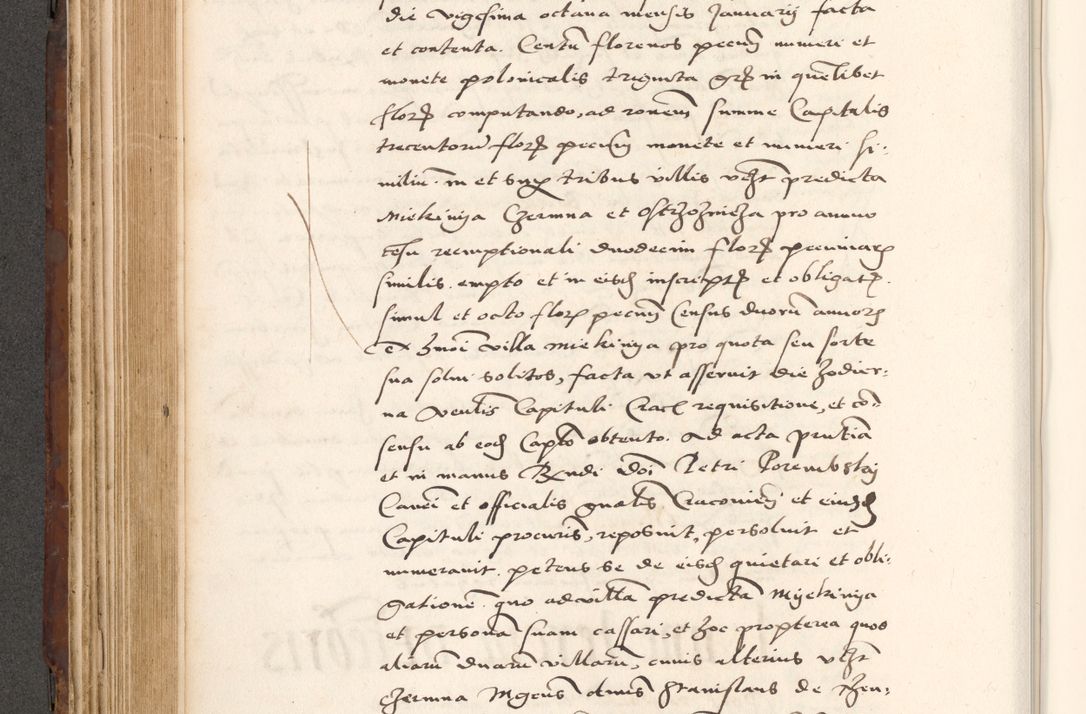 die vigesima octava mensis Januarij facta
et contenta. Centū florenos pecuń numeri et
monete polonicalis triginta grꝭ in quēlibet
florꝭ computando, ad ronem̄ summe Capitalis
trecentorū florꝭ pecuń monete et numeri si-
miliū. in et sup tribus villis vcꝫt predicta
Miekinya Czermna et Ostrzoznicza pro annuo
cēsu reemptionali duodecim florꝭ pecuniarꝭ
similis. empto et in eisdꝭ inscriptꝭ et obligatꝭ.
simul et octo florꝭ pecuń Census duorū annorꝭ
ex hmōi villa Miekinya pro quota seu sorte
sua solui solitos, facta vt asseruit die hodier-
na Venlis Capituli Cracꝭ requisitione, et cō-
sensu ab eodꝭ Caplō obtento. Ad acta pñtia
et in manus Rñdi dni Petri Porembskij
Canci et officialis gnalis Cracouień et eiusdꝭ
Capituli procuris, reposuit, persoluit et
numerauit. petens se de eisdꝭ quietari et obli-
gationē. quo ad villā predictā Myekinya
et personā suam cassari, et hoc propterea quos
aliarū duarū villarū, cuius alterius vcꝫt
Czermna Mgcus dnus Stanislaus de Then-